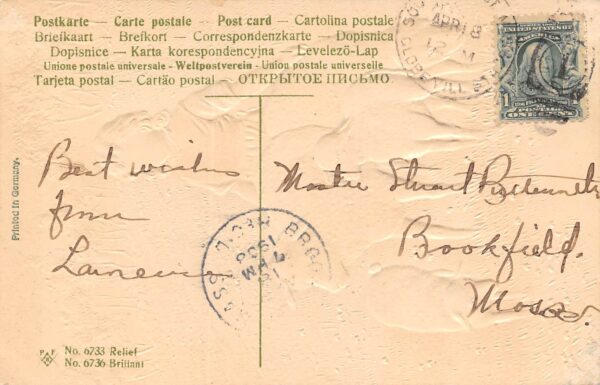 Postkarte - Carte postale - Post card - Cartolina postale
Briefkaart - Brefkort - Correspondenzkarte - Dopisnica
Dopisnice - Karta korespondencyjna - Levelező-Lap
Unione postale universale - Weltpostverein - Union postale universelle
Tarjeta postal - Cartão postal - ОТКРЫТОЕ ПИСЬМО
APR 18
UNITED STATES OF AMERICA
1
POSTAGE
ONE CENT
Printed in Germany.
Best wishes
from
Master Stuart
Brookfield.
Mass.
REC'D.
7 AM
No. 6733 Relief
No. 6736 Brillant